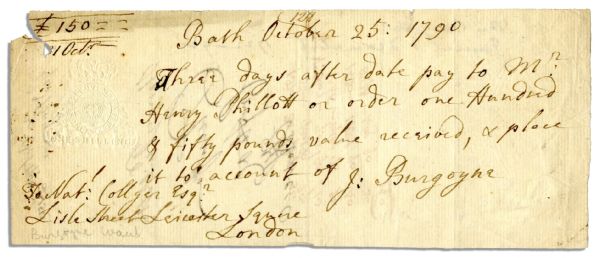 £ 150 = =
Bath October 25: 1790
Octr.
Three days after date pay to Mr.
Henry Phillott or order one Hundred
& fifty pounds value received, & place
it to account of J: Burgoyne
To Natl. Collyer Esqr.
Lisle Street Leicester Square
London
Burgoyne